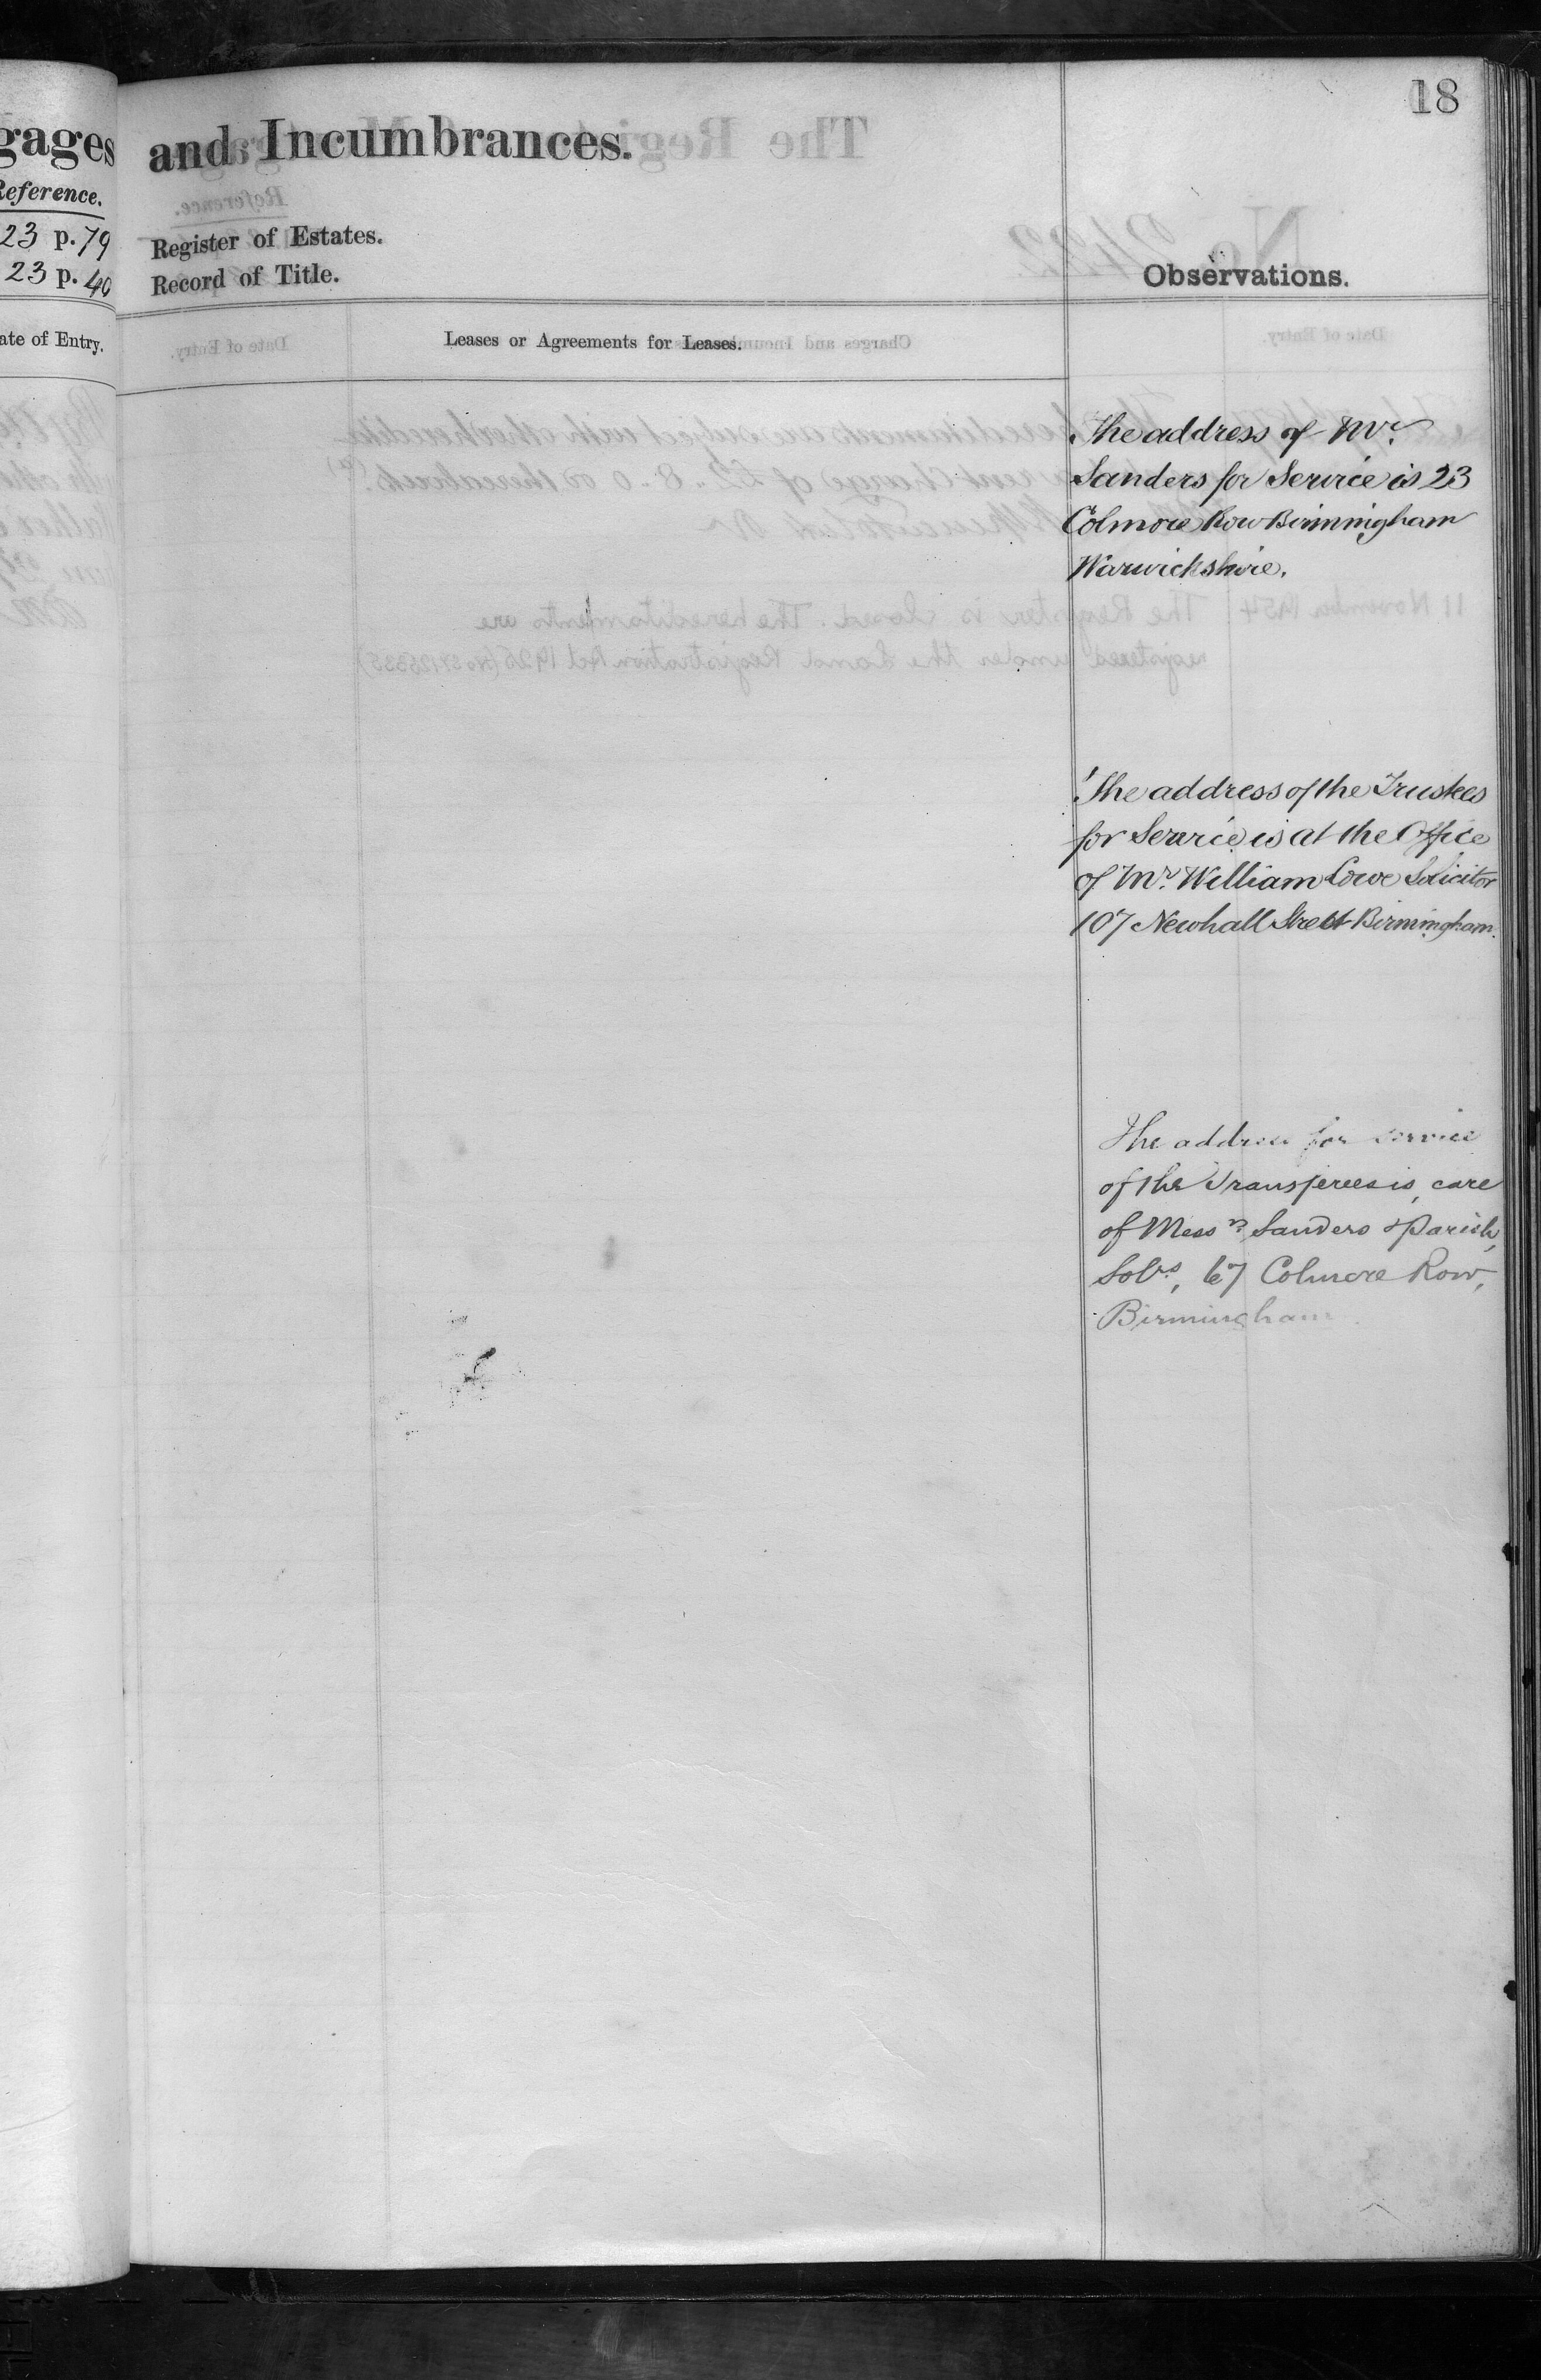 18
gages and Incumbrances.
Reference.
23 p. 79 Register of Estates.
23 p. 40 Record of Title.
Observations.
ate of Entry.
Leases or Agreements for Leases.
The address of Mr.
Sanders for Service is 23
Colmore Row Birmingham
Warwickshire.
The address of the Trustees
for Service is at the Office
of Mr. William Lowe Solicitor
107 Newhall Street Birmingham.
The address for service
of the Transferees is, care
of Messrs. Sanders & Parish,
Solrs, 67 Colmore Row,
Birmingham.